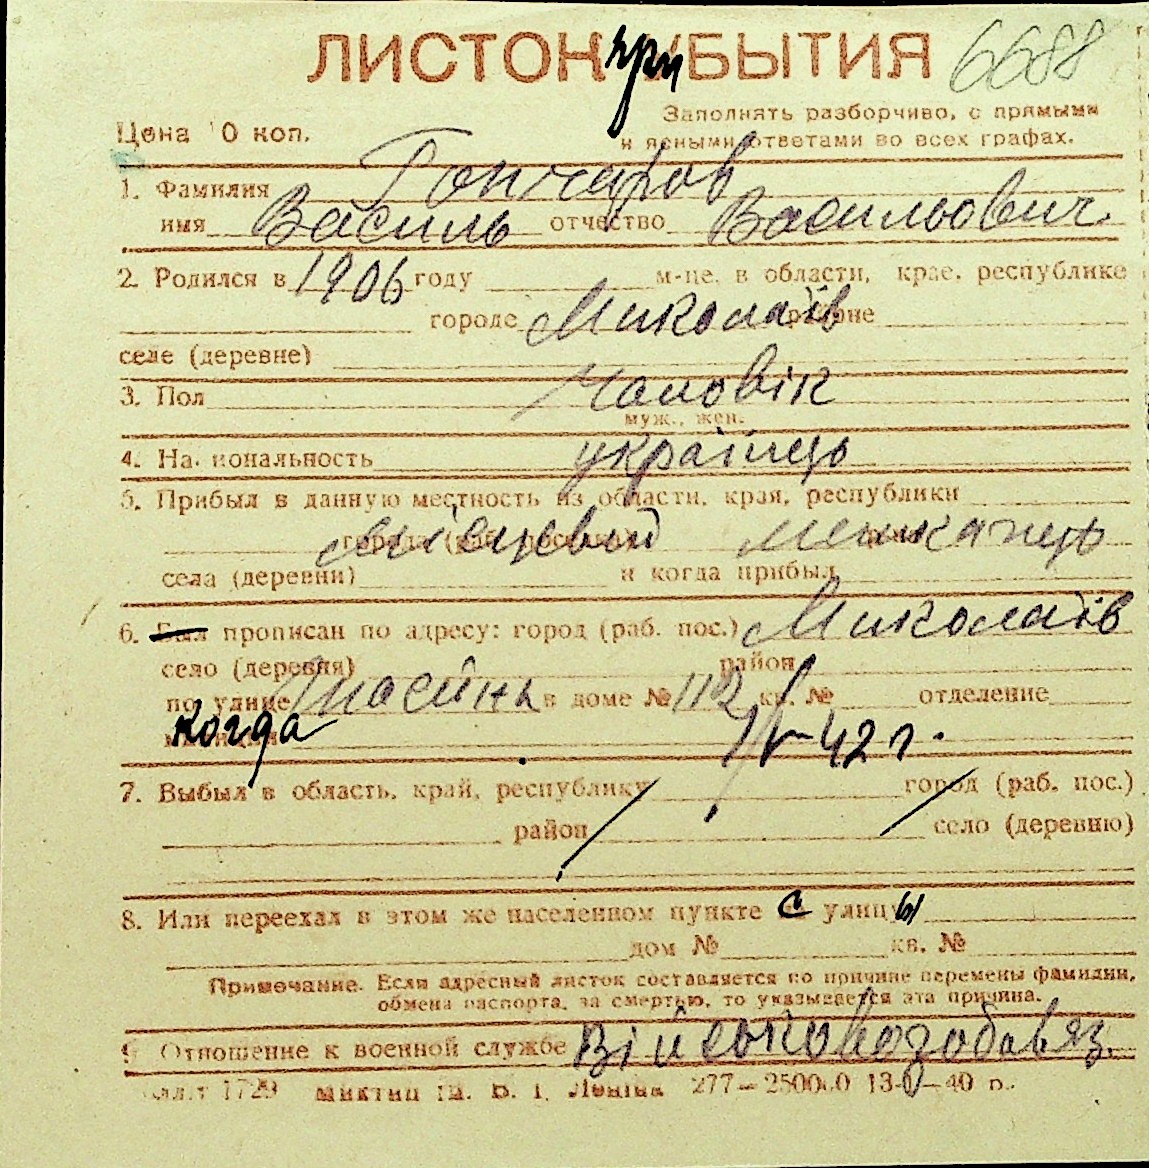 ЛИСТОК приБЫТИЯ 6688
Цена 10 коп.
Заполнять разборчиво, с прямыми
и ясными ответами во всех графах.
1. Фамилия Гончаров
имя Василь отчество Васильович
2. Родился в 1906 году м-це, в области, крае, республике
городе Миколаїв районе
селе (деревне)
3. Пол Чоловік
муж., жен.
4. Национальность українець
5. Прибыл в данную местность из области, края, республики
города (раб. поселка) місцевий района мешканець
села (деревни) и когда прибыл
6. Был прописан по адресу: город (раб. пос.) Миколаїв
село (деревня) район
по улице в доме № 112 кв. № отделение
милиции когда 1/V-42 г.
7. Выбыл в область, край, республику город (раб. пос.)
район село (деревню)
8. Или переехал в этом же населенном пункте с улицы
дом № кв. №
Примечание. Если адресный листок составляется по причине перемены фамилии,
обмена паспорта, за смертью, то указывается эта причина.
9. Отношение к военной службе Військовозобов'яз.
1729 277—250000 13- —40 г.